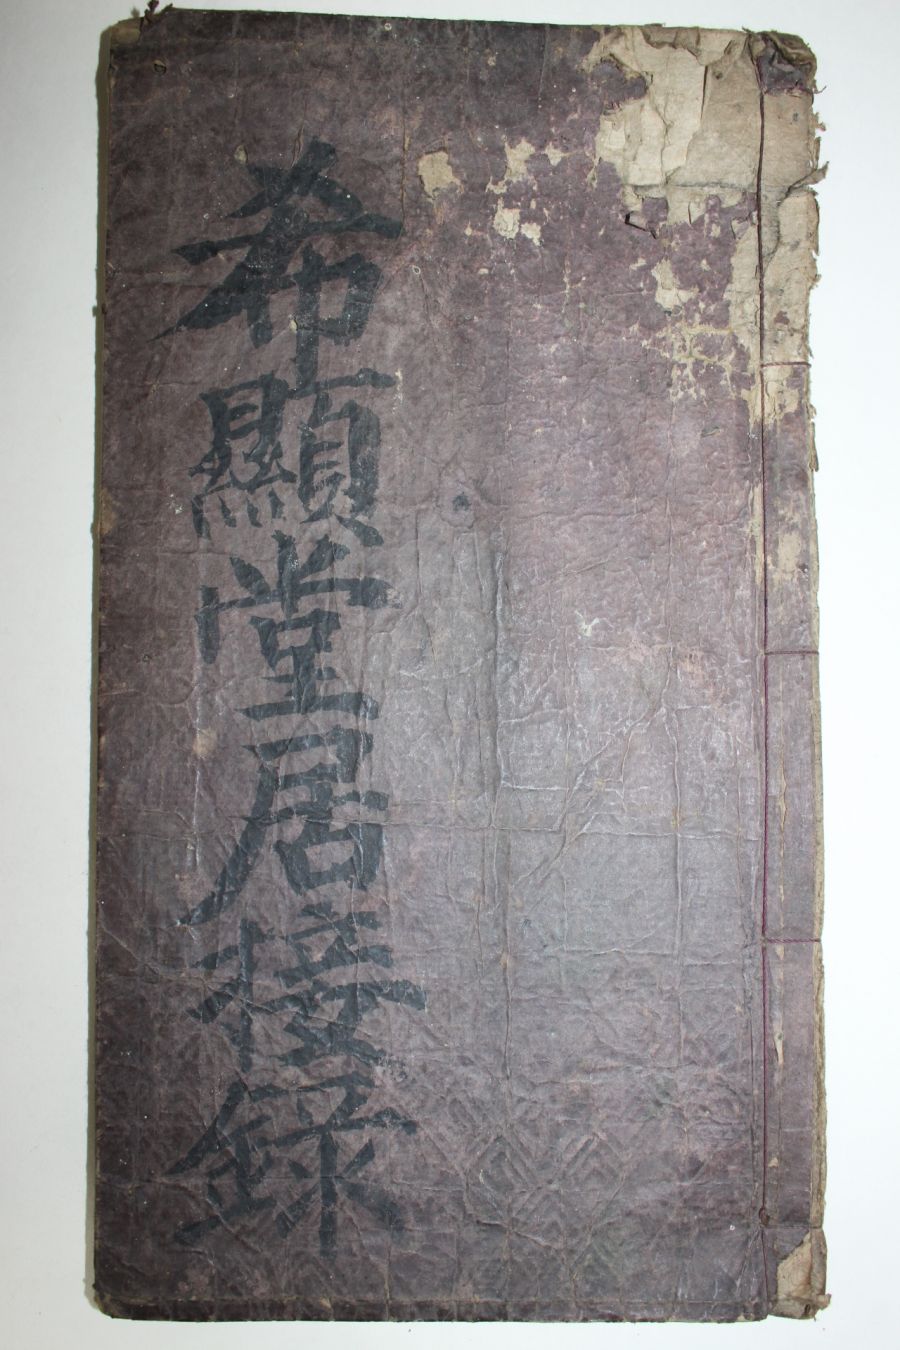 希顯堂居接錄